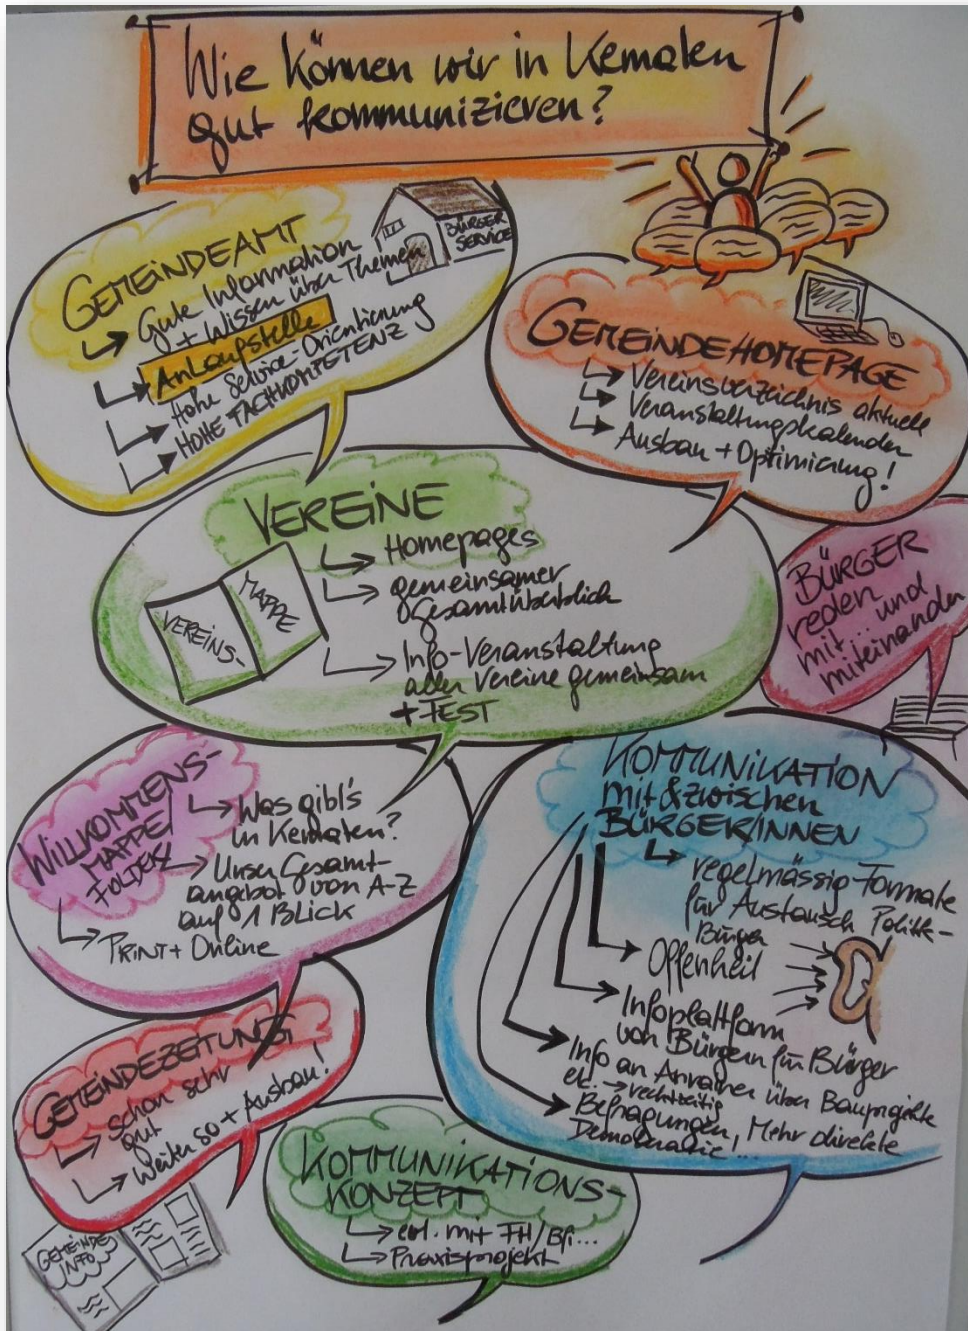 Wie können wir in Kematen
gut kommunizieren?
GEMEINDEAMT
BÜRGER
SERVICE
Gute Information
+ Wissen über Themen
Anlaufstelle
Hohe Service-Orientierung
HOHE FACHKOMPETENZ
GEMEINDEHOMEPAGE
Vereinsverzeichnis aktuell
Veranstaltungskalender
Ausbau + Optimierung!
VEREINE
VEREINS-
MAPPE
Homepages
gemeinsamer
Gesamtüberblick
Info-Veranstaltung
aller Vereine gemeinsam
+ FEST
BÜRGER
reden
mit... und
miteinander
WILLKOMMENS-
MAPPE/
FOLDER
Was gibt's
in Kematen?
Unser Gesamt-
angebot von A-Z
auf 1 BLICK
PRINT + Online
KOMMUNIKATION
mit & zwischen
BÜRGER/INNEN
regelmässig Formate
für Austausch Politik-
Bürger
Offenheit
Infoplattform
von Bürgern für Bürger
Info an Anrainer über Bauprojekte
etc. → rechtzeitig
Befragungen, Mehr direkte
Demokratie...
GEMEINDEZEITUNG
schon sehr
gut
Weiter so + Ausbau!
GEMEINDE
INFO
KOMMUNIKATIONS-
KONZEPT
evl. mit FH/Bfi...
Praxisprojekt